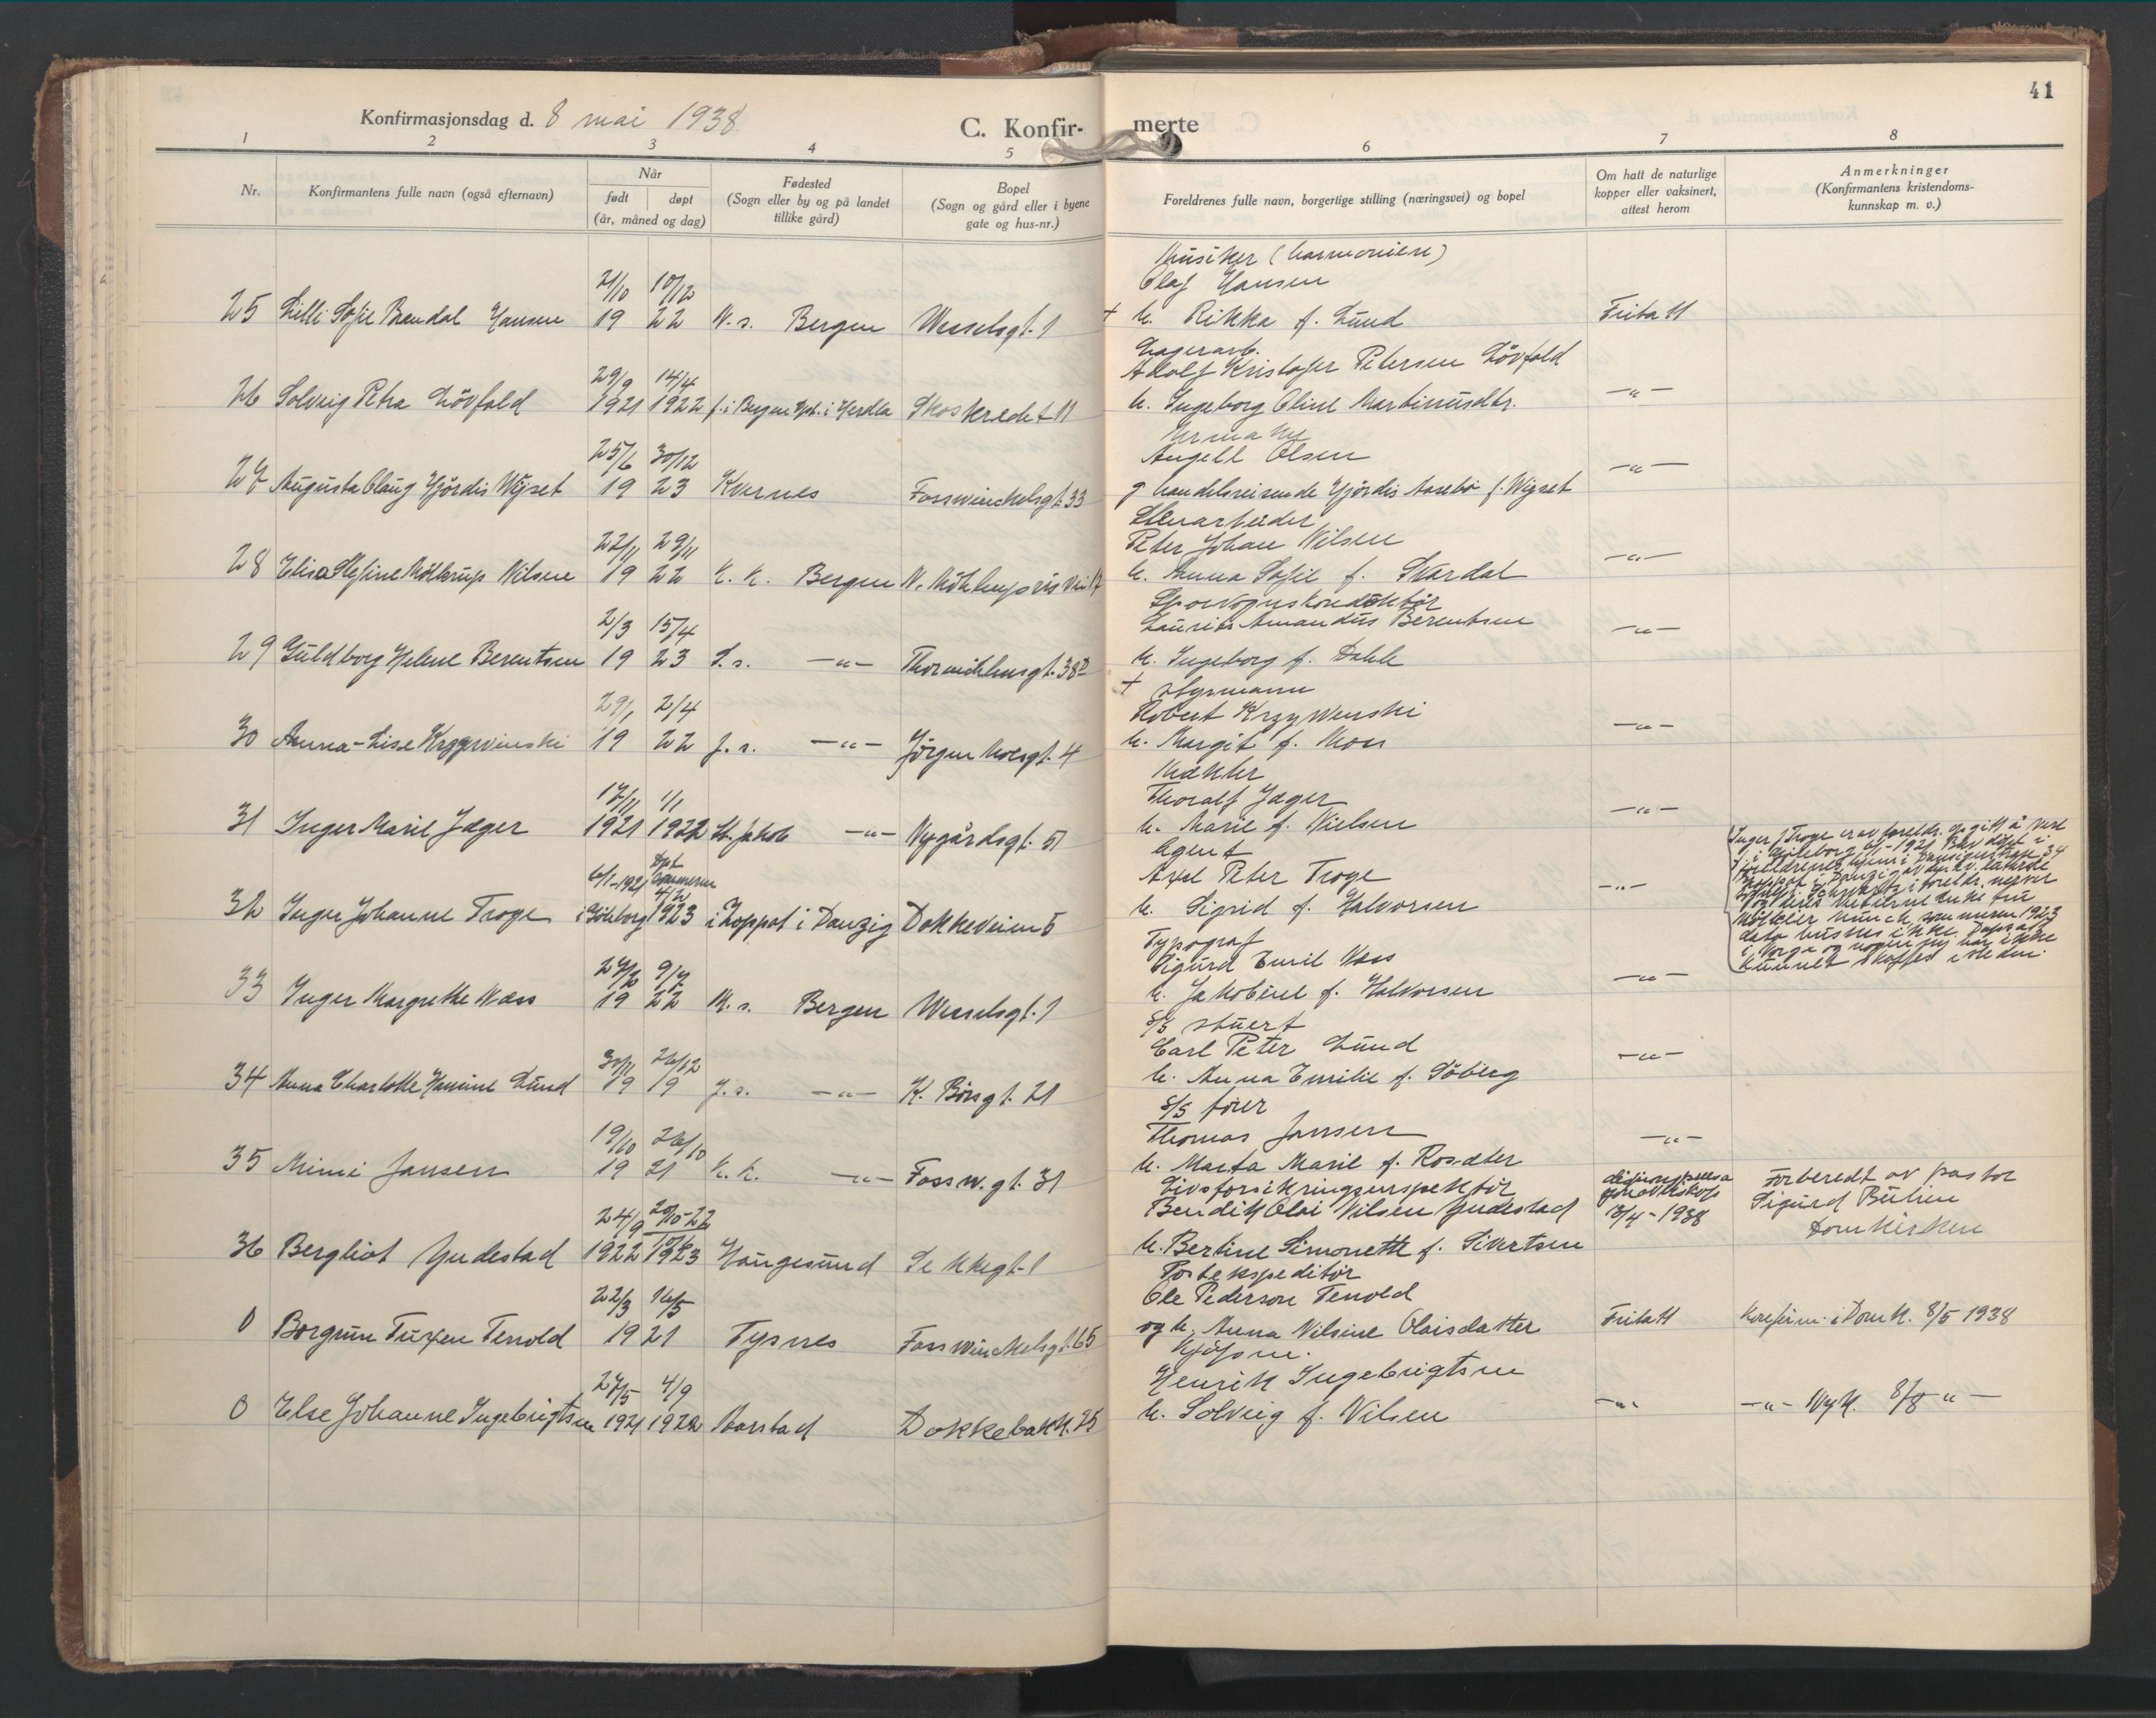 41
Konfirmasjonsdag d. 8 mai 1938
C. Konfir- merte
1 2 3 4 5 6 7 8
Nr.
Konfirmantens fulle navn (også efternavn)
Når
født døpt
(år, måned og dag)
Fødested
(Sogn eller by og på landet
tillike gård)
Bopel
(Sogn og gård eller i byene
gate og hus-nr.)
Foreldrenes fulle navn, borgerlige stilling (næringsvei) og bopel
Om hatt de naturlige
kopper eller vaksinert,
attest herom
Anmerkninger
(Konfirmantens kristendoms-
kunnskap m. v.)
Musiker (harmonien)
21/10 10/12 Olaf Hansen
25 Lilli Sofie Brendal Hansen 19 22 N. s. Bergen Wesselsgt. 1 + h. Rikka f. Lund Fritatt
Lagerarb.
29/9 14/4 Adolf Kristofer Petersen Lövfold
26 Solveig Petra Lövfold 1921 1922 f. i Bergen dpt. i Herdla Skoskredt 11 h. Ingeborg Oline Martinusdtr. -"-
Urmaker
25/6 30/12 Angell Olsen
27 Augusta Olaug Hjördis Wigset 19 23 Kvernes Fosswinckelsgt. 33 g handelsreisende Hjördis Aasebö f. Wigset -"-
22/11 29/11 Peter Johan Nilsen
28 Elisa Nilsen 19 22 K. K. Bergen N. h. Anna Sofie f. Skardal -"-
Sporvognskonduktör
2/3 15/4 Laurits Amandus Berentsen
29 Guldborg Helene Berentsen 19 23 S. s. -"- Thormöhlensgt. 38 h. Ingeborg f. Dahle -"-
+ styrmann
29/1 2/4 Robert Krzywinski
30 Anna-Lise Krzywinski 19 22 J. s. -"- Jörgen Moesgt. 4 h. Margit f. Moen -"-
Mekler
17/11 1/1 Thoralf Jæger
31 Inger Marie Jæger 1921 1922 St. Jakob -"- Nygårdsgt. 51 h. Marie f. Nielsen -"-
Agent
6/1-1921 Dpt sommeren Axel Peter Troye
32 Inger Johanne Troye i Göteborg 1923 i Zoppot i Danzig Dokkeveien 5 h. Sigrid f. Halvorsen -"-
Inger J Troye er av foreldr. opgitt å være
f. i Göteborg 6/1-1921. Blev döpt i
foreldrenes hjem i Danzigerstrasse 34
Zoppot i Danzig
sommeren 1923
dato huskes ikke. Dåpsatt.
kunnet skaffes
Typograf
9/7 Sigurd Emil Næss
33 Inger Margrethe Næss 19 22 M. s. Bergen Wesselsgt. 1 h. Jakobine f. Halvorsen -"-
S/S stuert
30/11 26/12 Carl Peter Lund
34 Anna Charlotte Hansine Lund 19 19 J. s. -"- K. Börsgt. 21 h. Anna Emilie f. Söberg -"-
S/S fører
19/10 26/10 Thomas Jansen
35 Mimi Jansen 19 21 K. K. -"- Fossw. gt. 31 h. Marta Marie f. Rosdter -"-
Livsforsikringsinspektör
24/9 29/10-22 Bendik Olai Nilsen Gudestad
36 Bergliot Gudestad 1922 1923 Haugesund Sekkegt. 1 h. Bertine Simonette f. Sivertsen 13/4-1938
Forberedt av pastor
Sigurd
Domkirken
Postekspeditör
22/3 16/5 Ole Pederson Tenold
0 Borgunn Tuxen Tenold 19 21 Tysnes Fosswinckelsgt. 65 og h. Anna Nilsine Olaisdatter Fritatt Konfirm. i Domk. 8/5 1938
27/5 4/9 Henrik Ingebrigtsen
0 Else Johanne Ingebrigtsen 1921 1922 Aarstad Dokkebakk. 25 h. Solveig f. Nilsen -"- -"- Nyk. 8/8 -"-